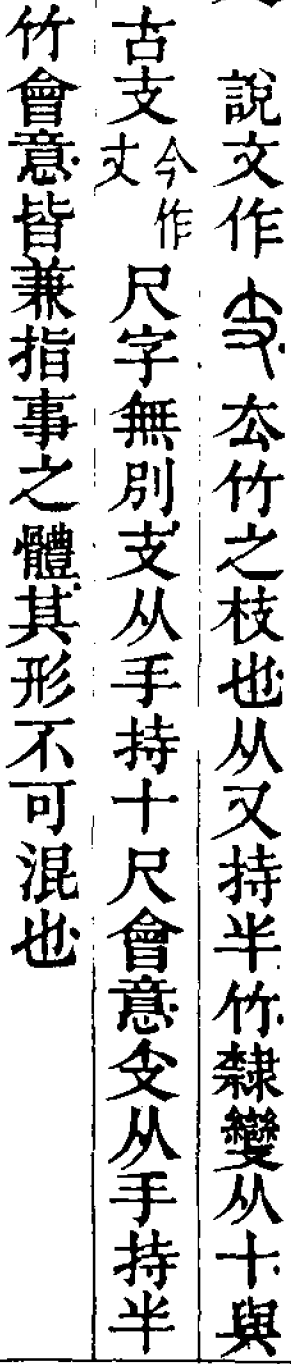 說文作厺竹之枝也从又持半竹隸變从十與
古支今作𠀋尺字無別支从手持十尺會意从手持半
竹會意皆兼指事之體其形不可混也